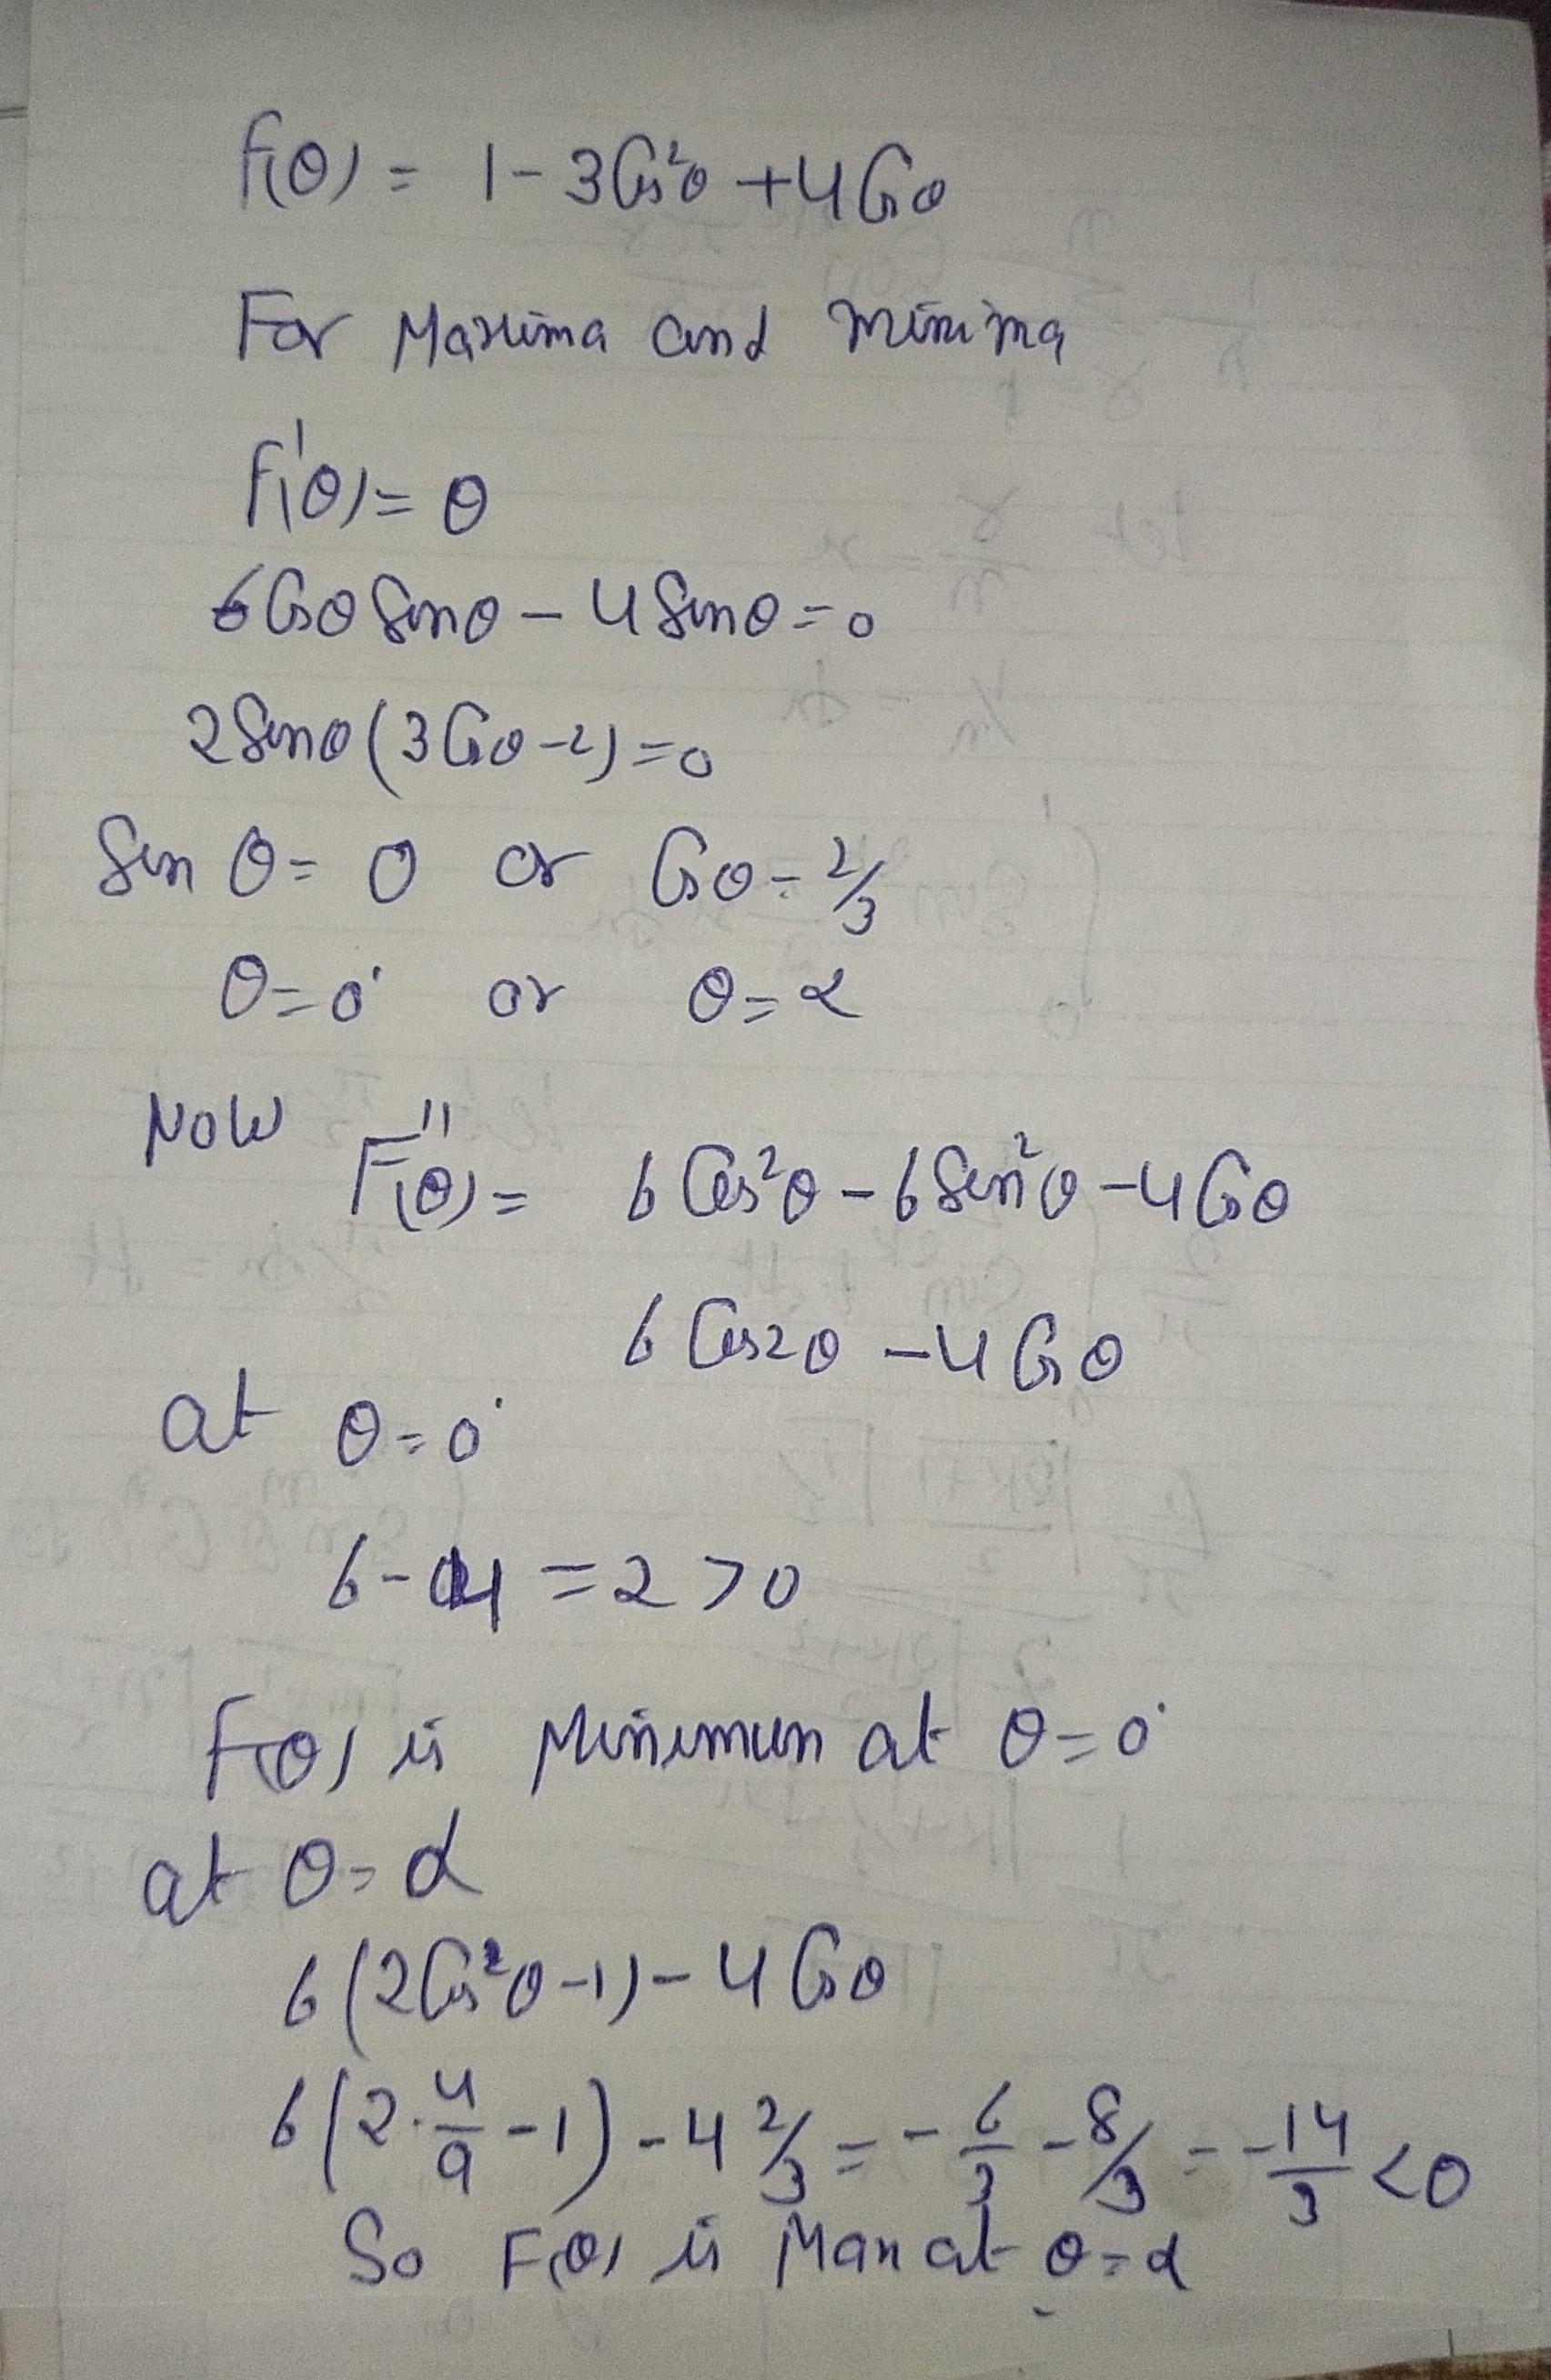 f(θ) = 1 - 3Cos²θ + 4Cosθ
For Maxima and minima
f'(θ) = 0
6Cosθ Sinθ - 4Sinθ = 0
2Sinθ(3Cosθ - 2) = 0
Sin θ = 0 or Cosθ = 2/3
θ = 0° or θ = α
Now F''(θ) = 6Cos²θ - 6Sin²θ - 4Cosθ
6Cos2θ - 4Cosθ
at θ = 0°
6 - 4 = 2 > 0
F(θ) is Minimum at θ = 0°
at θ = α
6(2Cos²θ - 1) - 4Cosθ
6(2·4/9 - 1) - 4 2/3 = -6/3 - 8/3 = -14/3 < 0
So F(θ) is Max at θ = α